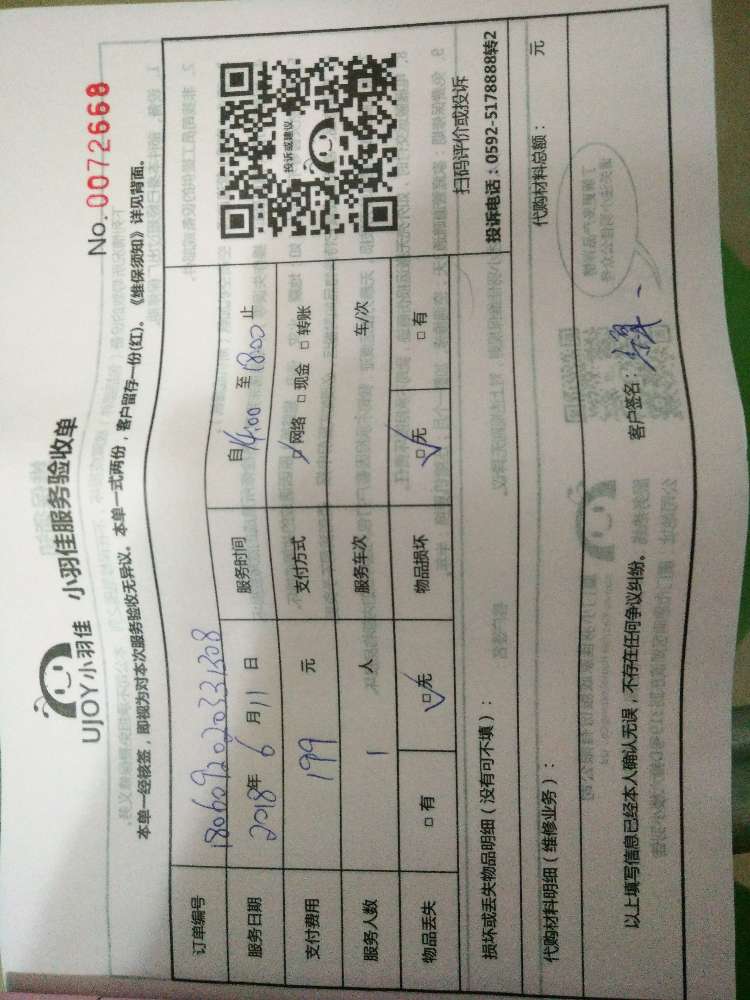 UJOY小羽佳 小羽佳服务验收单
No. 0072669
本单一经核签，即视为对本次服务验收无异议。本单一式两份，客户留存一份(红)。《维保须知》详见背面。
订单编号 180609202033 1308
服务日期 2018年 6 月 11 日 服务时间 自 14:00 至 18:00 止
支付费用 199 元 支付方式 ☑网络 □现金 □转账
服务人数 1 人 服务车次 车/次
物品丢失 □有 ☑无 物品损坏 ☑无 □有
投诉或建议
扫码评价或投诉
投诉电话：0592-5178888转2
损坏或丢失物品明细（没有可不填）：
代购材料明细（维修业务）： 代购材料总额： 元
以上填写信息已经本人确认无误，不存在任何争议纠纷。 客户签名：